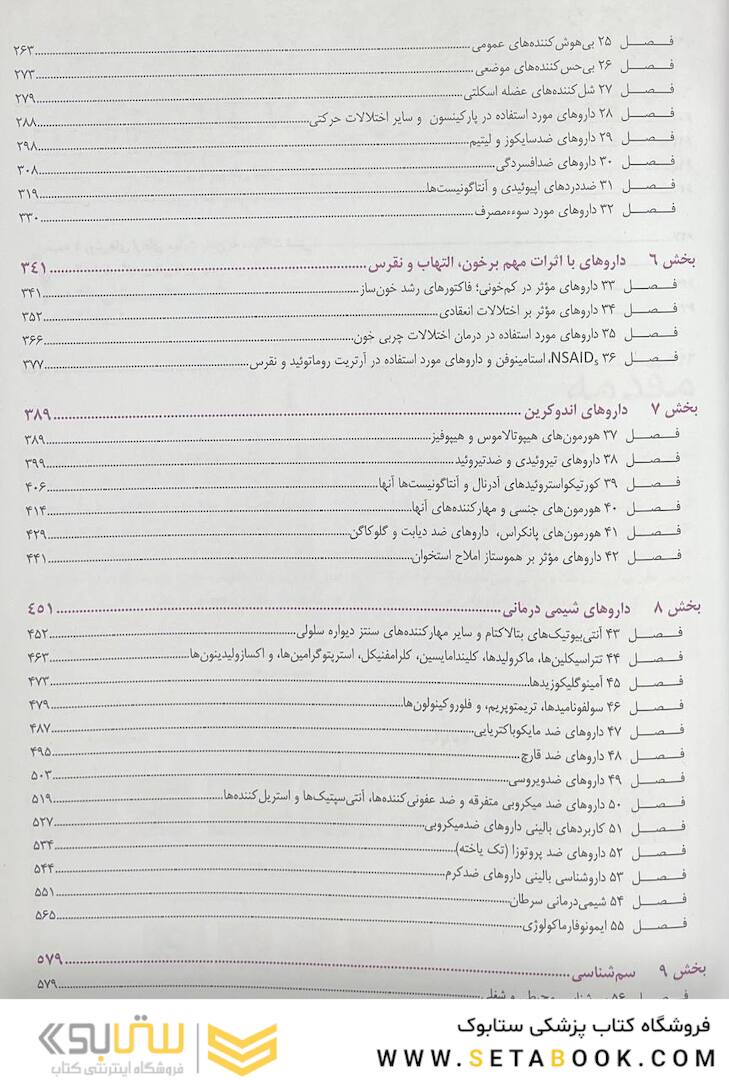 فصل ۲۵ بی‌هوش‌کننده‌های عمومی ۲۶۳
فصل ۲۶ بی‌حس‌کننده‌های موضعی ۲۷۳
فصل ۲۷ شل‌کننده‌های عضله اسکلتی ۲۷۹
فصل ۲۸ داروهای مورد استفاده در پارکینسون و سایر اختلالات حرکتی ۲۸۸
فصل ۲۹ داروهای ضدسایکوز و لیتیم ۲۹۸
فصل ۳۰ داروهای ضدافسردگی ۳۰۸
فصل ۳۱ ضددردهای اپیوئیدی و آنتاگونیست‌ها ۳۱۹
فصل ۳۲ داروهای مورد سوءمصرف ۳۳۰
بخش ۶ داروهای با اثرات مهم برخون، التهاب و نقرس ۳۴۱
فصل ۳۳ داروهای مؤثر در کم‌خونی؛ فاکتورهای رشد خون‌ساز ۳۴۱
فصل ۳۴ داروهای مؤثر بر اختلالات انعقادی ۳۵۲
فصل ۳۵ داروهای مورد استفاده در درمان اختلالات چربی خون ۳۶۶
فصل ۳۶ NSAIDs، استامینوفن و داروهای مورد استفاده در آرتریت روماتوئید و نقرس ۳۷۷
بخش ۷ داروهای اندوکرین ۳۸۹
فصل ۳۷ هورمون‌های هیپوتالاموس و هیپوفیز ۳۸۹
فصل ۳۸ داروهای تیروئیدی و ضدتیروئید ۳۹۹
فصل ۳۹ کورتیکواستروئیدهای آدرنال و آنتاگونیست‌ها آنها ۴۰۶
فصل ۴۰ هورمون‌های جنسی و مهارکننده‌های آنها ۴۱۴
فصل ۴۱ هورمون‌های پانکراس، داروهای ضد دیابت و گلوکاگن ۴۲۹
فصل ۴۲ داروهای مؤثر بر هموستاز املاح استخوان ۴۴۱
بخش ۸ داروهای شیمی درمانی ۴۵۱
فصل ۴۳ آنتی‌بیوتیک‌های بتالاکتام و سایر مهارکننده‌های سنتز دیواره سلولی ۴۵۲
فصل ۴۴ تتراسیکلین‌ها، ماکرولیدها، کلیندامایسین، کلرامفنیکل، استرپتوگرامین‌ها، و اکسازولیدینون‌ها ۴۶۳
فصل ۴۵ آمینوگلیکوزیدها ۴۷۳
فصل ۴۶ سولفونامیدها، تریمتوپریم، و فلوروکینولون‌ها ۴۷۹
فصل ۴۷ داروهای ضد مایکوباکتریایی ۴۸۷
فصل ۴۸ داروهای ضد قارچ ۴۹۵
فصل ۴۹ داروهای ضدویروسی ۵۰۳
فصل ۵۰ داروهای ضد میکروبی متفرقه و ضد عفونی‌کننده‌ها، آنتی‌سپتیک‌ها و استریل‌کننده‌ها ۵۱۹
فصل ۵۱ کاربردهای بالینی داروهای ضدمیکروبی ۵۲۷
فصل ۵۲ داروهای ضد پروتوزا (تک یاخته) ۵۳۴
فصل ۵۳ داروشناسی بالینی داروهای ضدکرم ۵۴۴
فصل ۵۴ شیمی‌درمانی سرطان ۵۵۱
فصل ۵۵ ایمونوفارماکولوژی ۵۶۵
بخش ۹ سم‌شناسی ۵۷۹
فصل ۵۶ محیطی و شغلی ۵۷۹
فروشگاه کتاب پزشکی ستابوک
WWW.SETABOOK.COM
ستابوک
فروشگاه اینترنتی کتاب